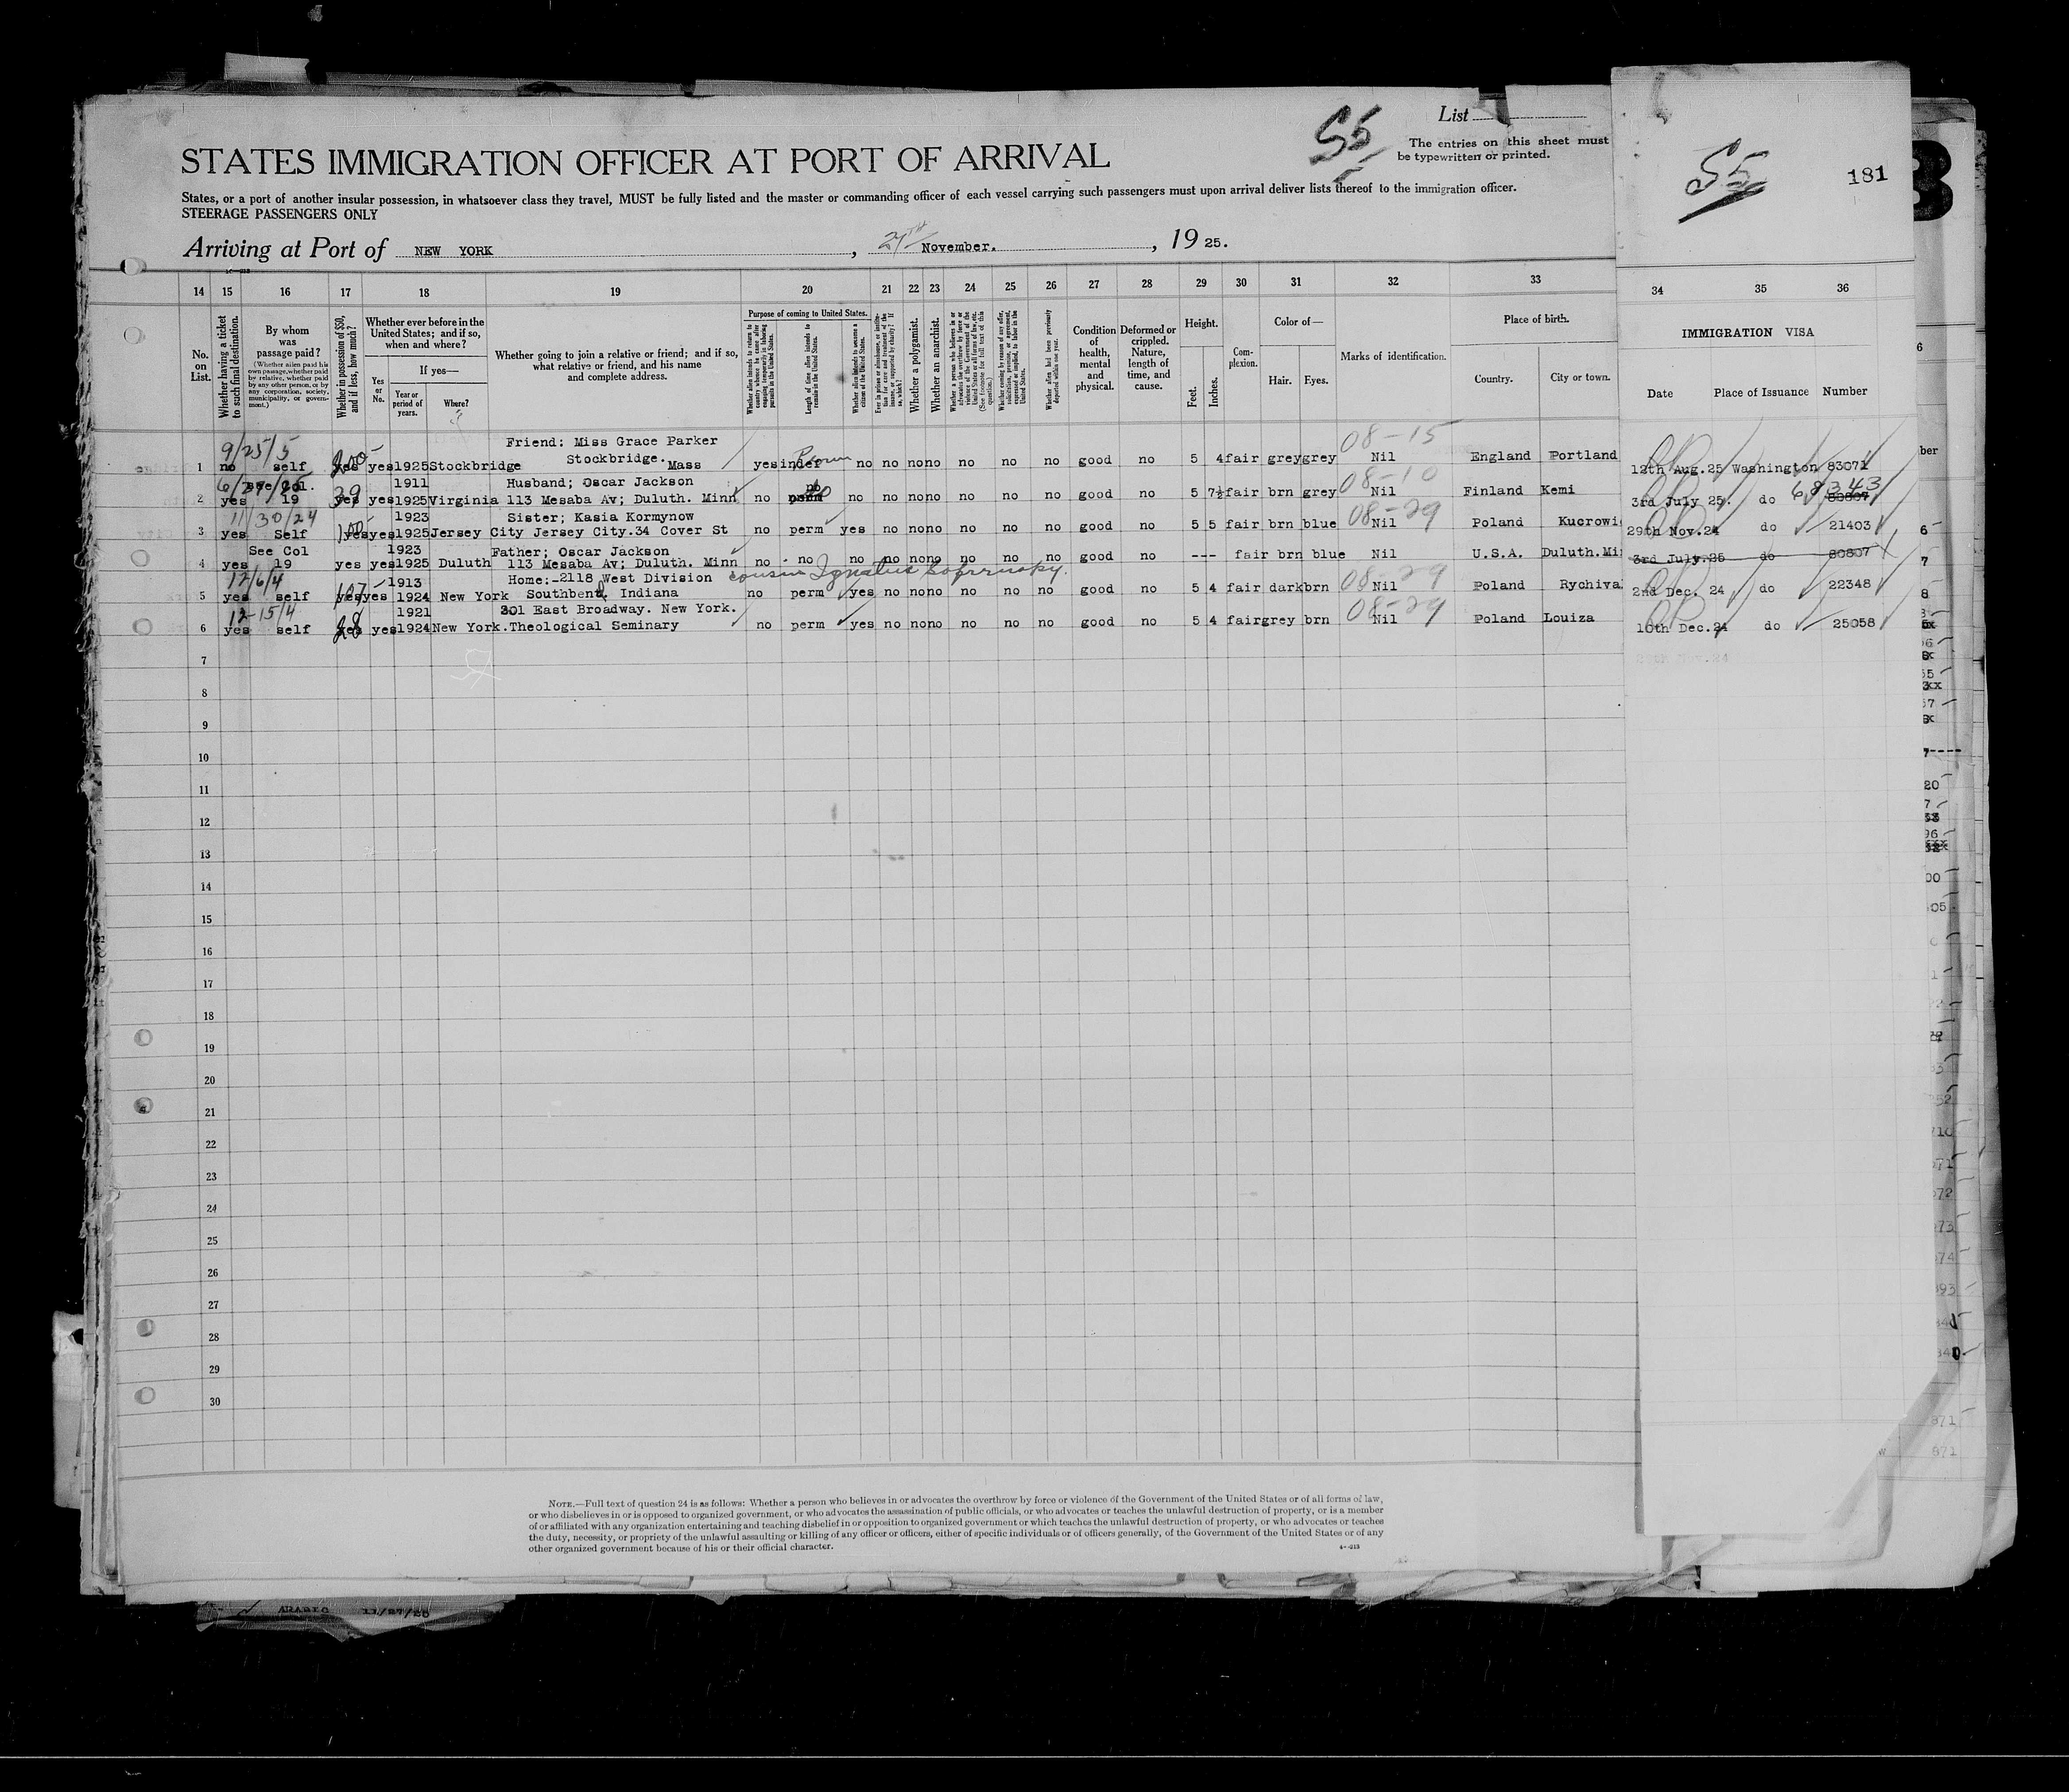 List
55
The entries on this sheet must
be typewritten or printed.
55
181
STATES IMMIGRATION OFFICER AT PORT OF ARRIVAL
States, or a port of another insular possession, in whatsoever class they travel, MUST be fully listed and the master or commanding officer of each vessel carrying such passengers must upon arrival deliver lists thereof to the immigration officer.
STEERAGE PASSENGERS ONLY
Arriving at Port of NEW YORK, November. , 1925.
14 15 16 17 18 19 20 21 22 23 24 25 26 27 28 29 30 31 32 33 34 35 36
No. on List.
Whether having a ticket to such final destination.
By whom was passage paid?
(Whether alien paid his own passage, whether paid by relative, whether paid by any other person, or by any corporation, society, municipality, or government.)
Whether in possession of $50, and if less, how much?
Whether ever before in the United States; and if so, when and where?
Yes or No.
If yes—
Year or period of years.
Where?
Whether going to join a relative or friend; and if so, what relative or friend, and his name and complete address.
Purpose of coming to United States.
Length of time alien intends to remain in the United States.
Whether alien intends to become a citizen of the United States.
Whether a polygamist.
Whether an anarchist.
Condition of health, mental and physical.
Deformed or crippled. Nature, length of time, and cause.
Height.
Feet. Inches.
Complexion.
Color of—
Hair. Eyes.
Marks of identification.
Place of birth.
Country. City or town.
IMMIGRATION VISA
Date Place of Issuance Number
9/25/5 Friend: Miss Grace Parker Perm 08-15
1 no self yes yes 1925 Stockbridge Stockbridge. Mass yes indef no no no no no no no good no 5 4 fair grey grey Nil England Portland 12th Aug.25 Washington 83071
see Col. 39 1911 Husband; Oscar Jackson no 08-10 68343
2 yes 19 yes yes 1925 Virginia 113 Mesaba Av; Duluth. Minn no perm no no no no no no no good no 5 7½ fair brn grey Nil Finland Kemi 3rd July 25. do 80807
11/30/24 100 1923 Sister; Kasia Kormynow 08-29
3 yes Self yes yes 1925 Jersey City Jersey City.34 Cover St no perm yes no no no no no no good no 5 5 fair brn blue Nil Poland Kucrowi 29th Nov.24 do 21403
See Col 1923 Father; Oscar Jackson
4 yes 19 yes yes 1925 Duluth 113 Mesaba Av; Duluth. Minn no no no no no no no no no good no --- fair brn blue Nil U.S.A. Duluth.Mi 3rd July.25 do 80807
12/6/4 1913 Home:-2118 West Division cousin Ignatius 08-29
5 yes self yes yes 1924 New York Southbend, Indiana no perm yes no no no no no no good no 5 4 fair dark brn Nil Poland Rychiva 2nd Dec. 24 do 22348
12-15/4 28 1921 301 East Broadway. New York. 08-29
6 yes self yes yes 1924 New York. Theological Seminary no perm yes no no no no no no good no 5 4 fair grey brn Nil Poland Louiza 10th Dec.24 do 25058
7
8
9
10
11
12
13
14
15
16
17
18
19
20
21
22
23
24
25
26
27
28
29
30
NOTE.—Full text of question 24 is as follows: Whether a person who believes in or advocates the overthrow by force or violence of the Government of the United States or of all forms of law,
or who disbelieves in or is opposed to organized government, or who advocates the assassination of public officials, or who advocates or teaches the unlawful destruction of property, or is a member
of or affiliated with any organization entertaining and teaching disbelief in or opposition to organized government or which teaches the unlawful destruction of property, or who advocates or teaches
the duty, necessity, or propriety of the unlawful assaulting or killing of any officer or officers, either of specific individuals or of officers generally, of the Government of the United States or of any
other organized government because of his or their official character.
ARABIC 11/27/25